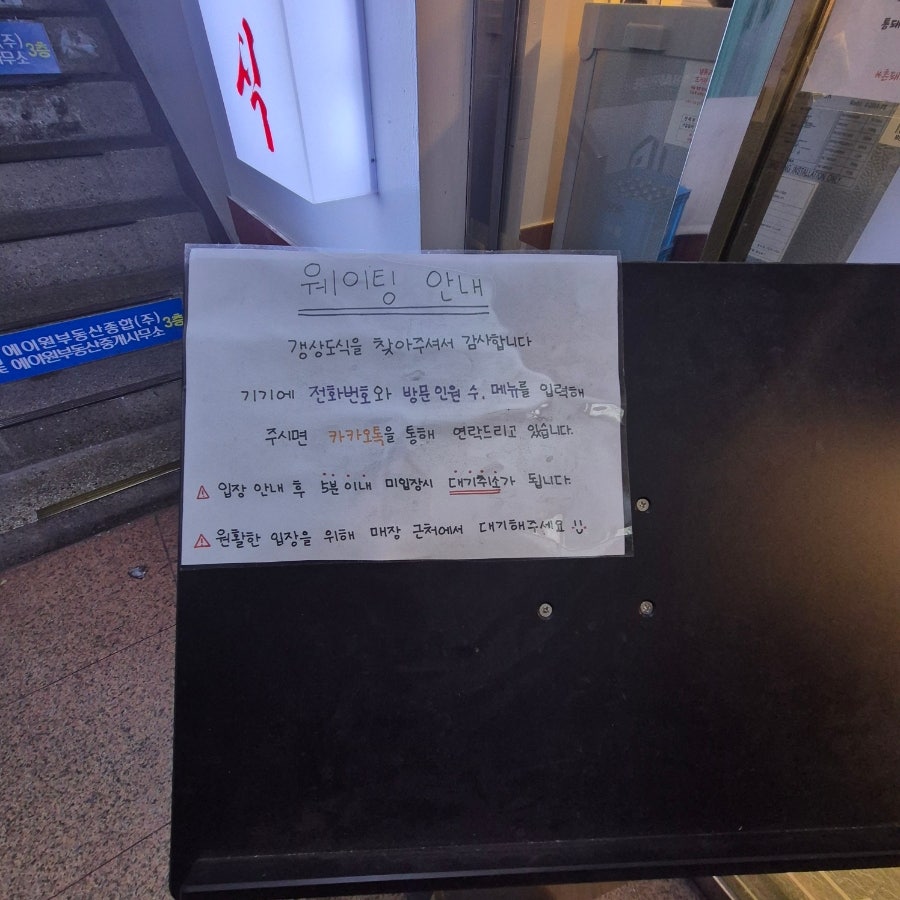 (주)
무소 3층
식
웨이팅 안내
갱상도식을 찾아주셔서 감사합니다
기기에 전화번호와 방문 인원 수, 메뉴를 입력해
주시면 카카오톡을 통해 연락드리고 있습니다.
⚠ 입장 안내 후 5분 이내 미입장시 대기취소가 됩니다.
⚠ 원활한 입장을 위해 매장 근처에서 대기해주세요 !!
에이원부동산종합(주) 3층
및 에이원부동산중개사무소
INSTALLATION ONLY